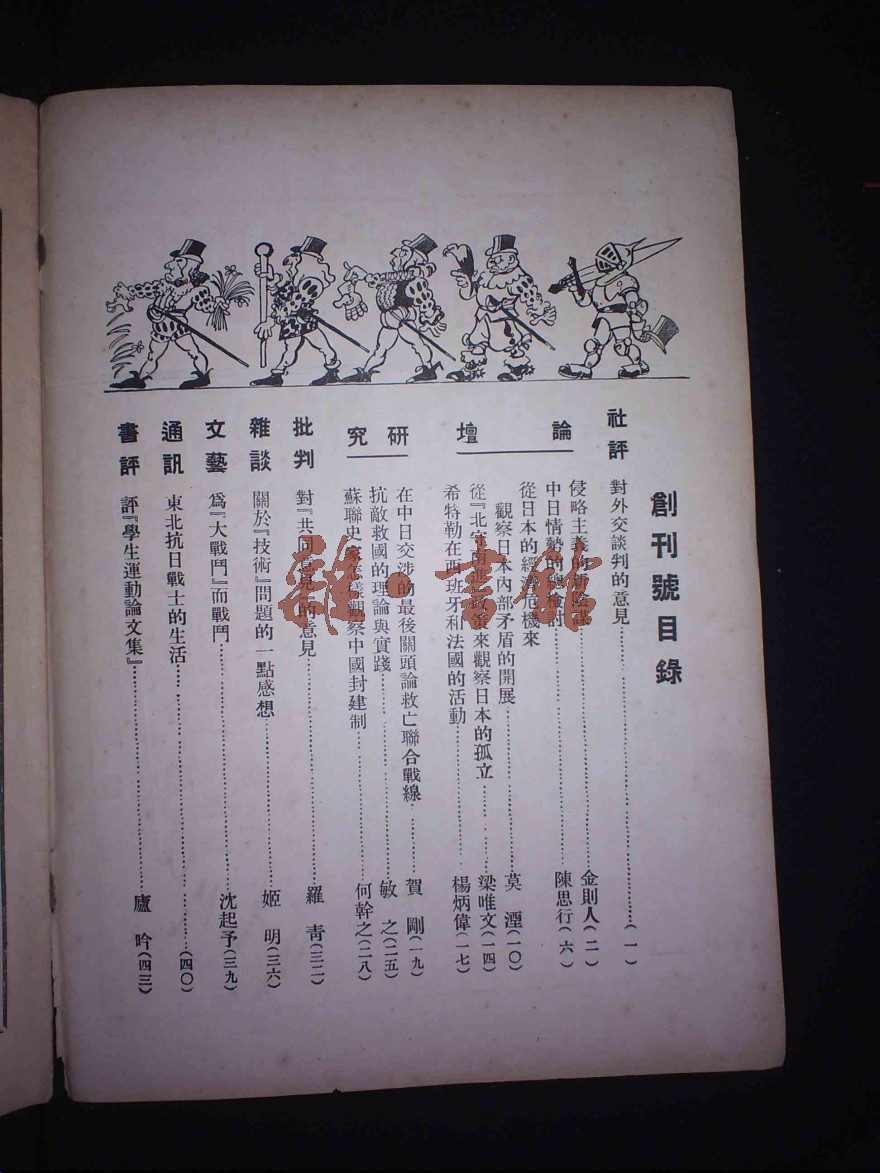 創刊號目錄
社評
對外交談判的意見……(一)
論壇
侵略主義的新陰謀……金則人(二)
中日情勢的總檢討……陳思行(六)
從日本的經濟危機來
觀察日本內部矛盾的開展……莫湮(一〇)
從『北守南進』政策來觀察日本的孤立……梁唯文(一四)
希特勒在西班牙和法國的活動……楊炳偉(一七)
研究
在中日交涉的最後關頭論救亡聯合戰線……賀剛(一九)
抗敵救國的理論與實踐……敏之(二五)
蘇聯史家怎樣觀察中國封建制……何幹之(二八)
批判
對『共同意見』的意見……羅青(三二)
雜談
關於『技術』問題的一點感想……姬明(三六)
文藝
爲『大戰鬥』而戰鬥……沈起予(三九)
通訊
東北抗日戰士的生活……(四〇)
書評
評『學生運動論文集』……廬吟(四三)
雜·書館